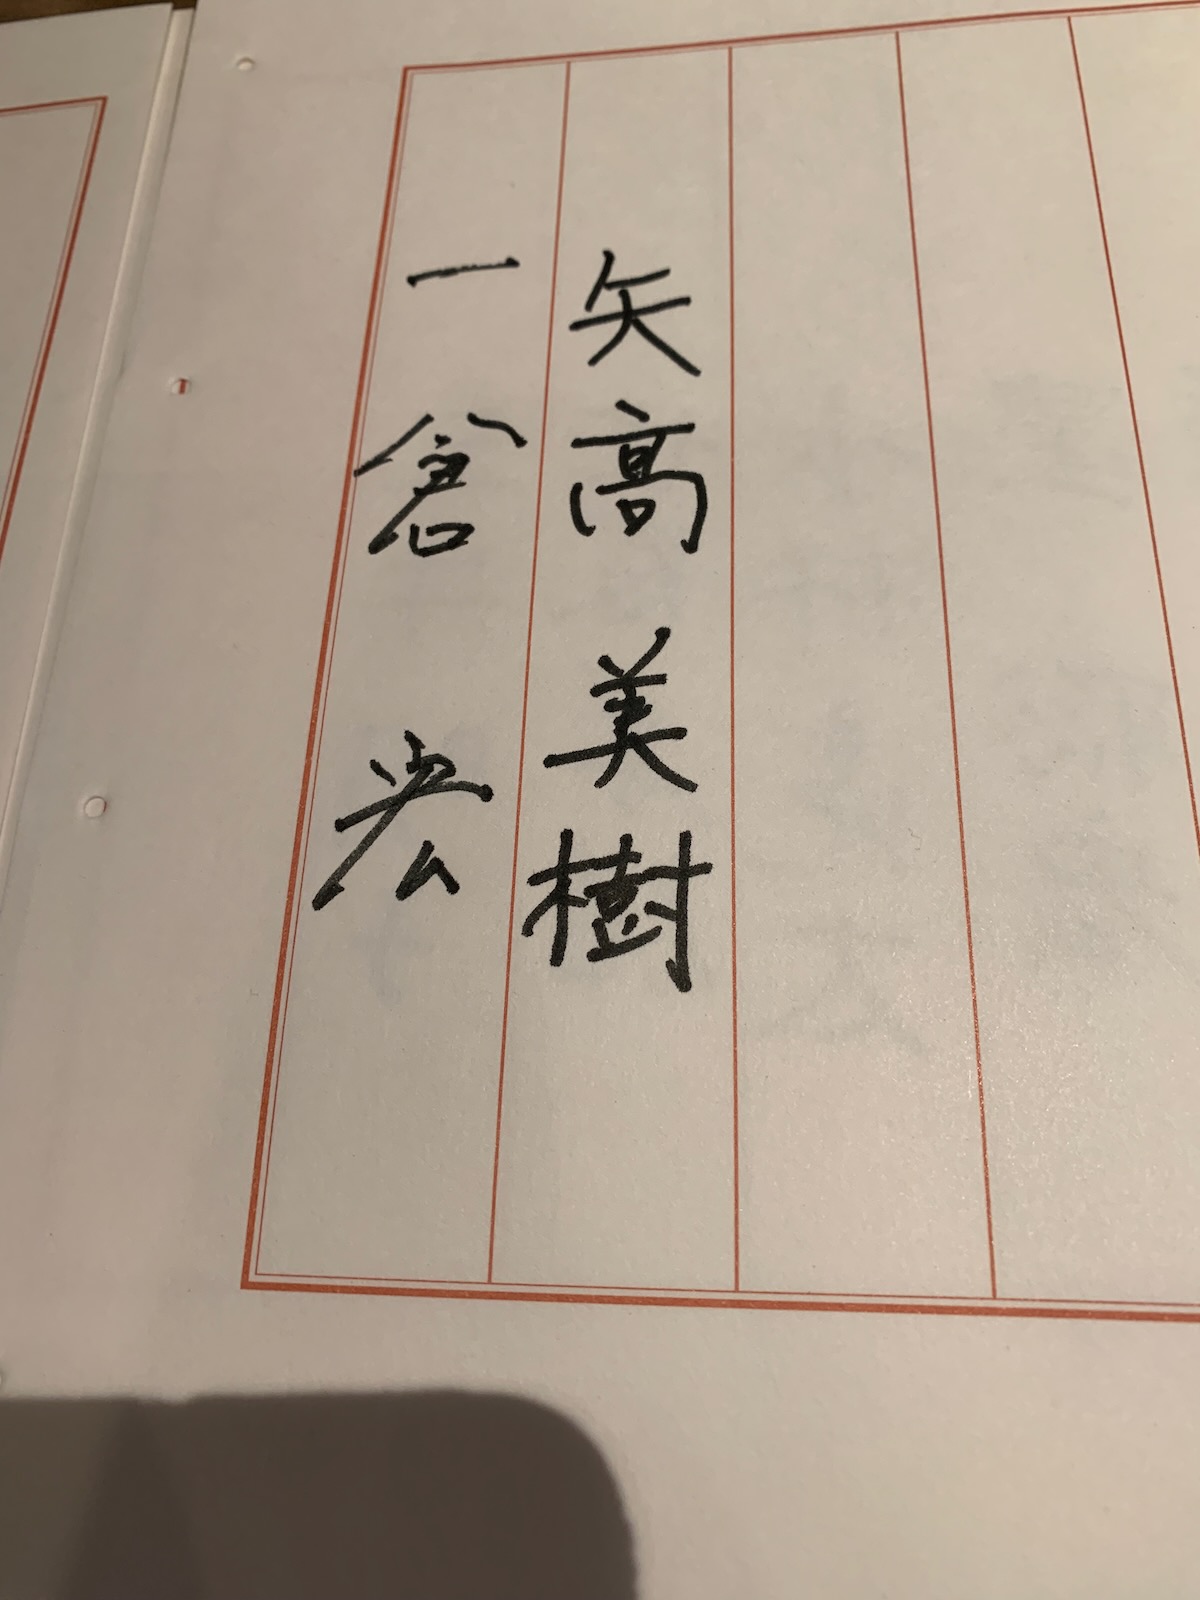 矢高美樹
一倉宏